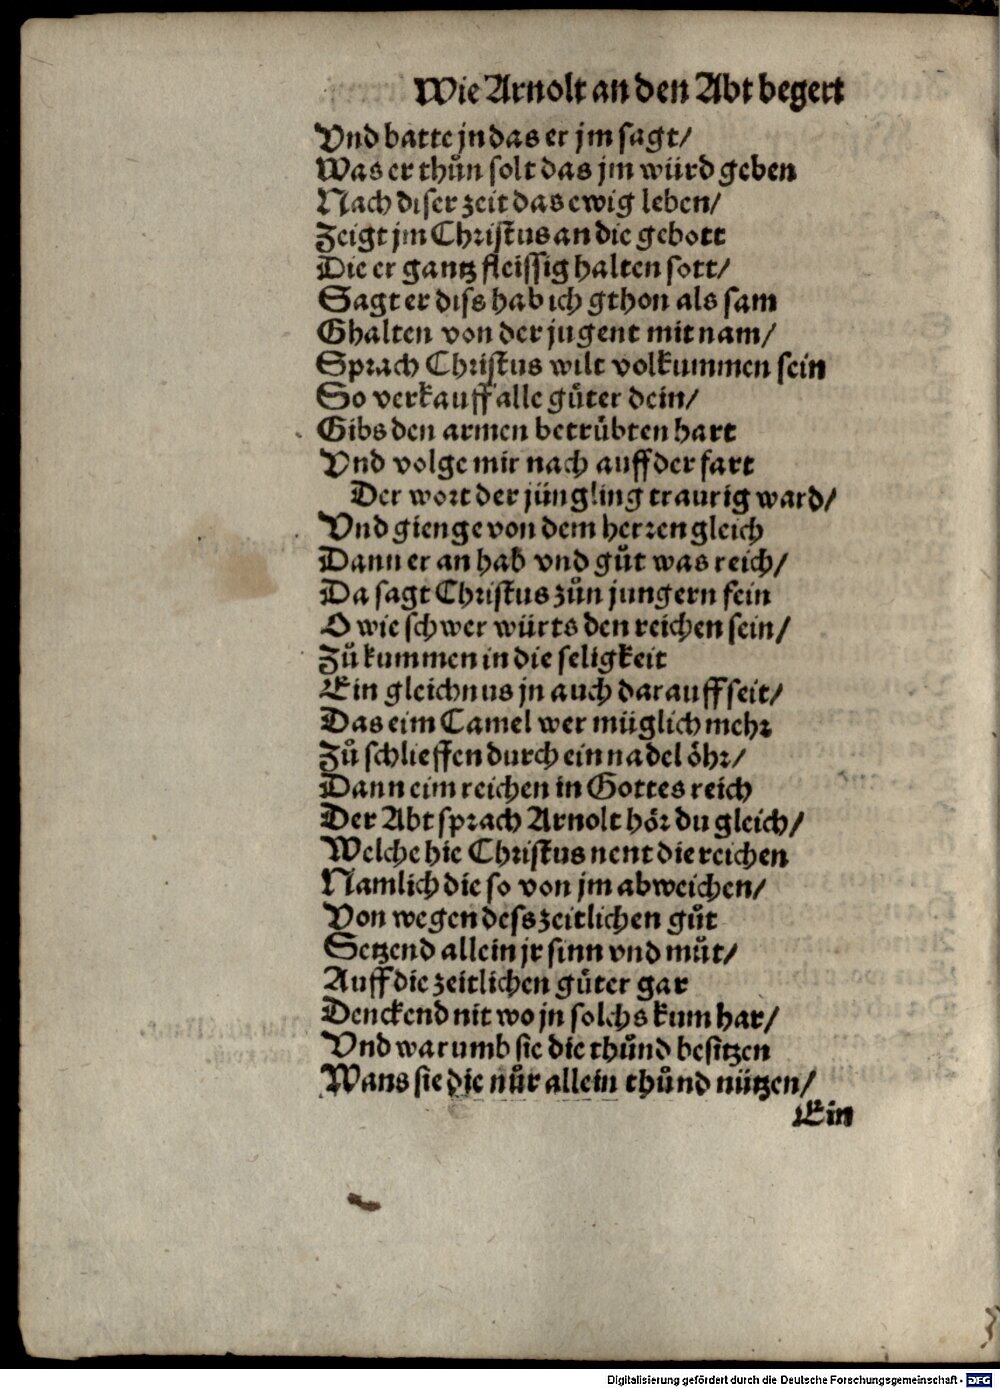 Wie Arnolt an den Abt begert
Vnd batte jn das er jm sagt/
Was er thůn solt das jm würd geben
Nach diser zeit das ewig leben/
Zeigt jm Christus an die gebott
Die er gantz fleissig halten sott/
Sagt er diss hab ich gthon als sam
Ghalten von der jugent mit nam/
Sprach Christus wilt volkummen sein
So verkauff alle gůter dein/
Gibs den armen betrůbten hart
Vnd volge mir nach auff der fart
Der wort der jüngling traurig ward/
Vnd gienge von dem herren gleich
Dann er an hab vnd gůt was reich/
Da sagt Christus zůn jungern fein
O wie schwer würts den reichen sein/
Zů kummen in die seligkeit
Ein gleichnus jn auch darauff seit/
Das eim Camel wer müglich mehr
Zů schlieffen durch ein nadel öhr/
Dann eim reichen in Gottes reich
Der Abt sprach Arnolt hör du gleich/
Welche hie Christus nent die reichen
Namlich die so von jm abweichen/
Von wegen dess zeitlichen gůt
Setzend allein jr sinn vnd můt/
Auff die zeitlichen gůter gar
Denckend nit wo jn solchs kum har/
Vnd warumb sie die thůnd besitzen
Wans sie die nůr allein thůnd nützen/
Ein
Digitalisierung gefördert durch die Deutsche Forschungsgemeinschaft - DFG